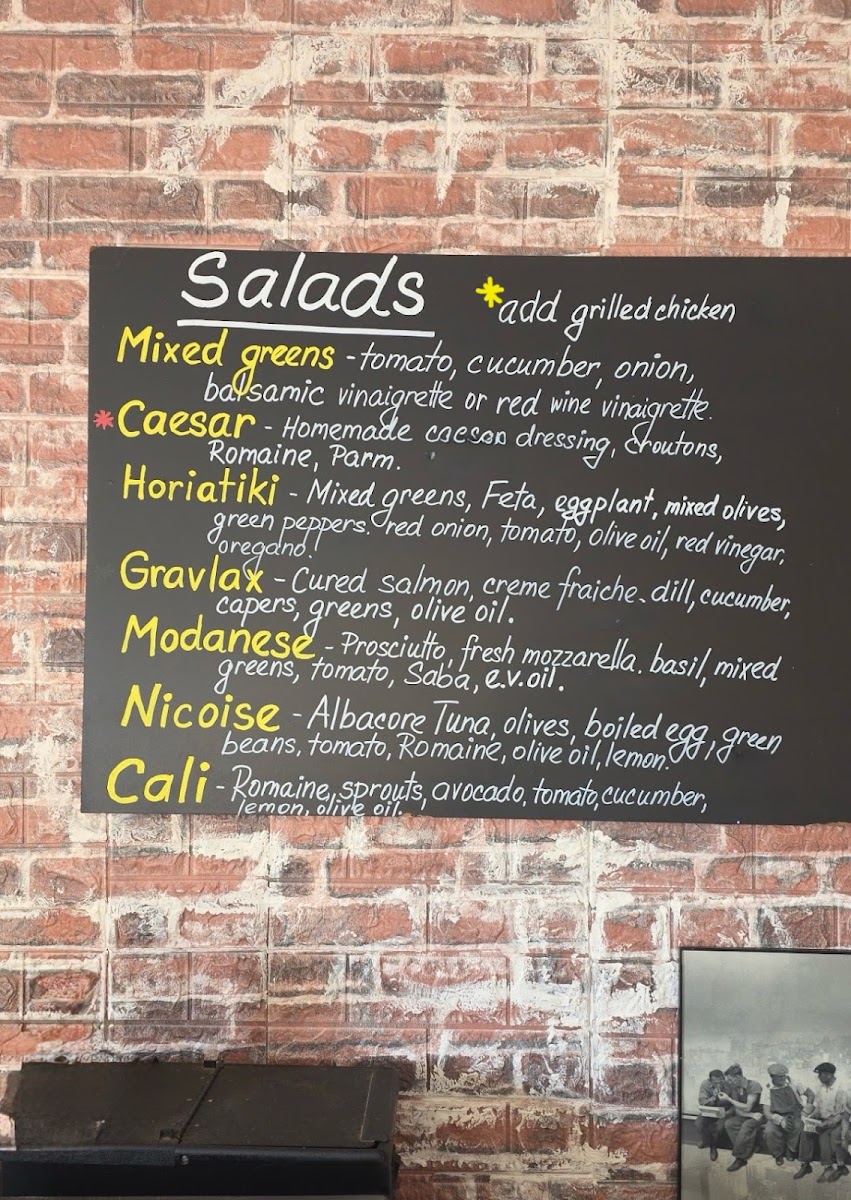 Salads
*add grilled chicken
Mixed greens - tomato, cucumber, onion,
balsamic vinaigrette or red wine vinaigrette.
*Caesar - Homemade caesar dressing, Croutons,
Romaine, Parm.
Horiatiki - Mixed greens, Feta, eggplant, mixed olives,
green peppers. red onion, tomato, olive oil, red vinegar,
oregano.
Gravlax - Cured salmon, creme fraiche. dill, cucumber,
capers, greens, olive oil.
Modanese - Prosciutto, fresh mozzarella. basil, mixed
greens, tomato, Saba, e.v.oil.
Nicoise - Albacore Tuna, olives, boiled egg, green
beans, tomato, Romaine, olive oil, lemon.
Cali - Romaine, sprouts, avocado, tomato, cucumber,
lemon, olive oil.